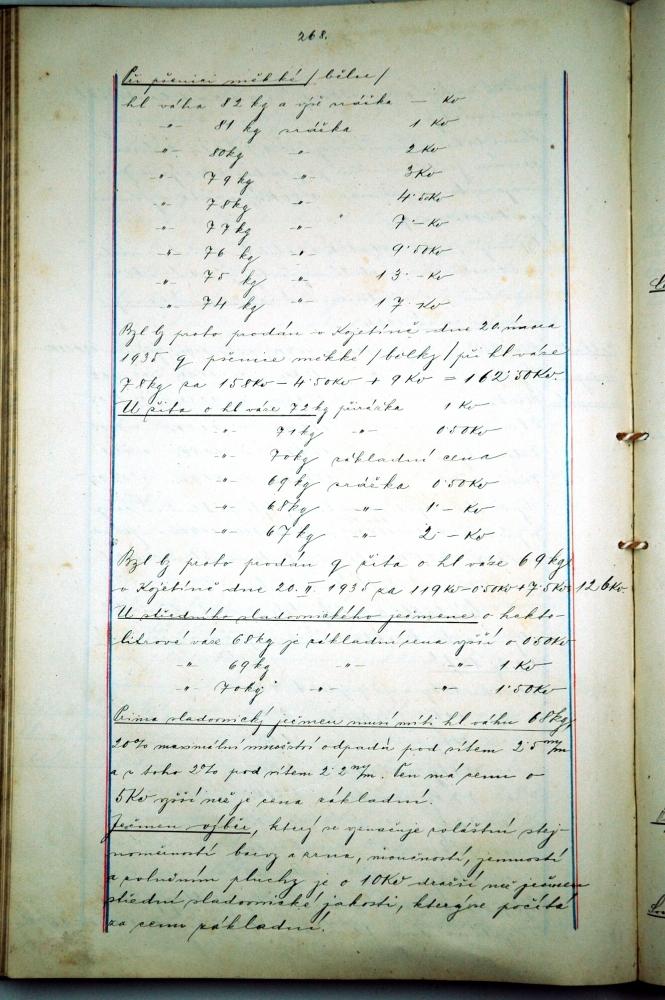 268.
Při pšenici měkké /bělce/
hl váha 82 kg a výše srážka — Kč
-"- 81 kg srážka 1 Kč
-"- 80 kg -"- 2 Kč
-"- 79 kg -"- 3 Kč
-"- 78 kg -"- 4·50 Kč
-"- 77 kg -"- 7·— Kč
-"- 76 kg -"- 9·50 Kč
-"- 75 kg -"- 13·— Kč
-"- 74 kg -"- 17·— Kč
Byl by proto prodán v Kojetíně dne 20. února
1935 q pšenice měkké /bělky/ při hl váze
78 kg za 158 Kč — 4·50 Kč + 9 Kč = 162·50 Kč.
U žita o hl váze 72 kg přirážka 1 Kč
-"- 71 kg -"- 0·50 Kč
-"- 70 kg základní cena
-"- 69 kg srážka 0·50 Kč
-"- 68 kg -"- 1·— Kč
-"- 67 kg -"- 2·— Kč
Byl by proto prodán q žita o hl váze 69 kg
v Kojetíně dne 20. II. 1935 za 119 Kč — 0·50 Kč + 7·5 Kč = 126 Kč.
U středního sladovnického ječmene o hekto-
litrové váze 68 kg je základní cena vyšší o 0·50 Kč
-"- 69 kg -"- -"- 1 Kč
-"- 70 kg -"- -"- 1·50 Kč
Prima sladovnický ječmen musí míti hl váhu 68 kg,
20% maximální množství odpadu pod sítem 2·5 m/m
a z toho 2% pod sítem 2·2 m/m. Ten má cenu o
5 Kč vyšší než je cena základní.
Ječmen výběr, který se vyznačuje zvláštní stej-
noměrností barvy a zrna, moučností, jemností
a zvlněním pluchy je o 10 Kč dražší než ječmen
střední sladovnické jakosti, který se počítá
za cenu základní.